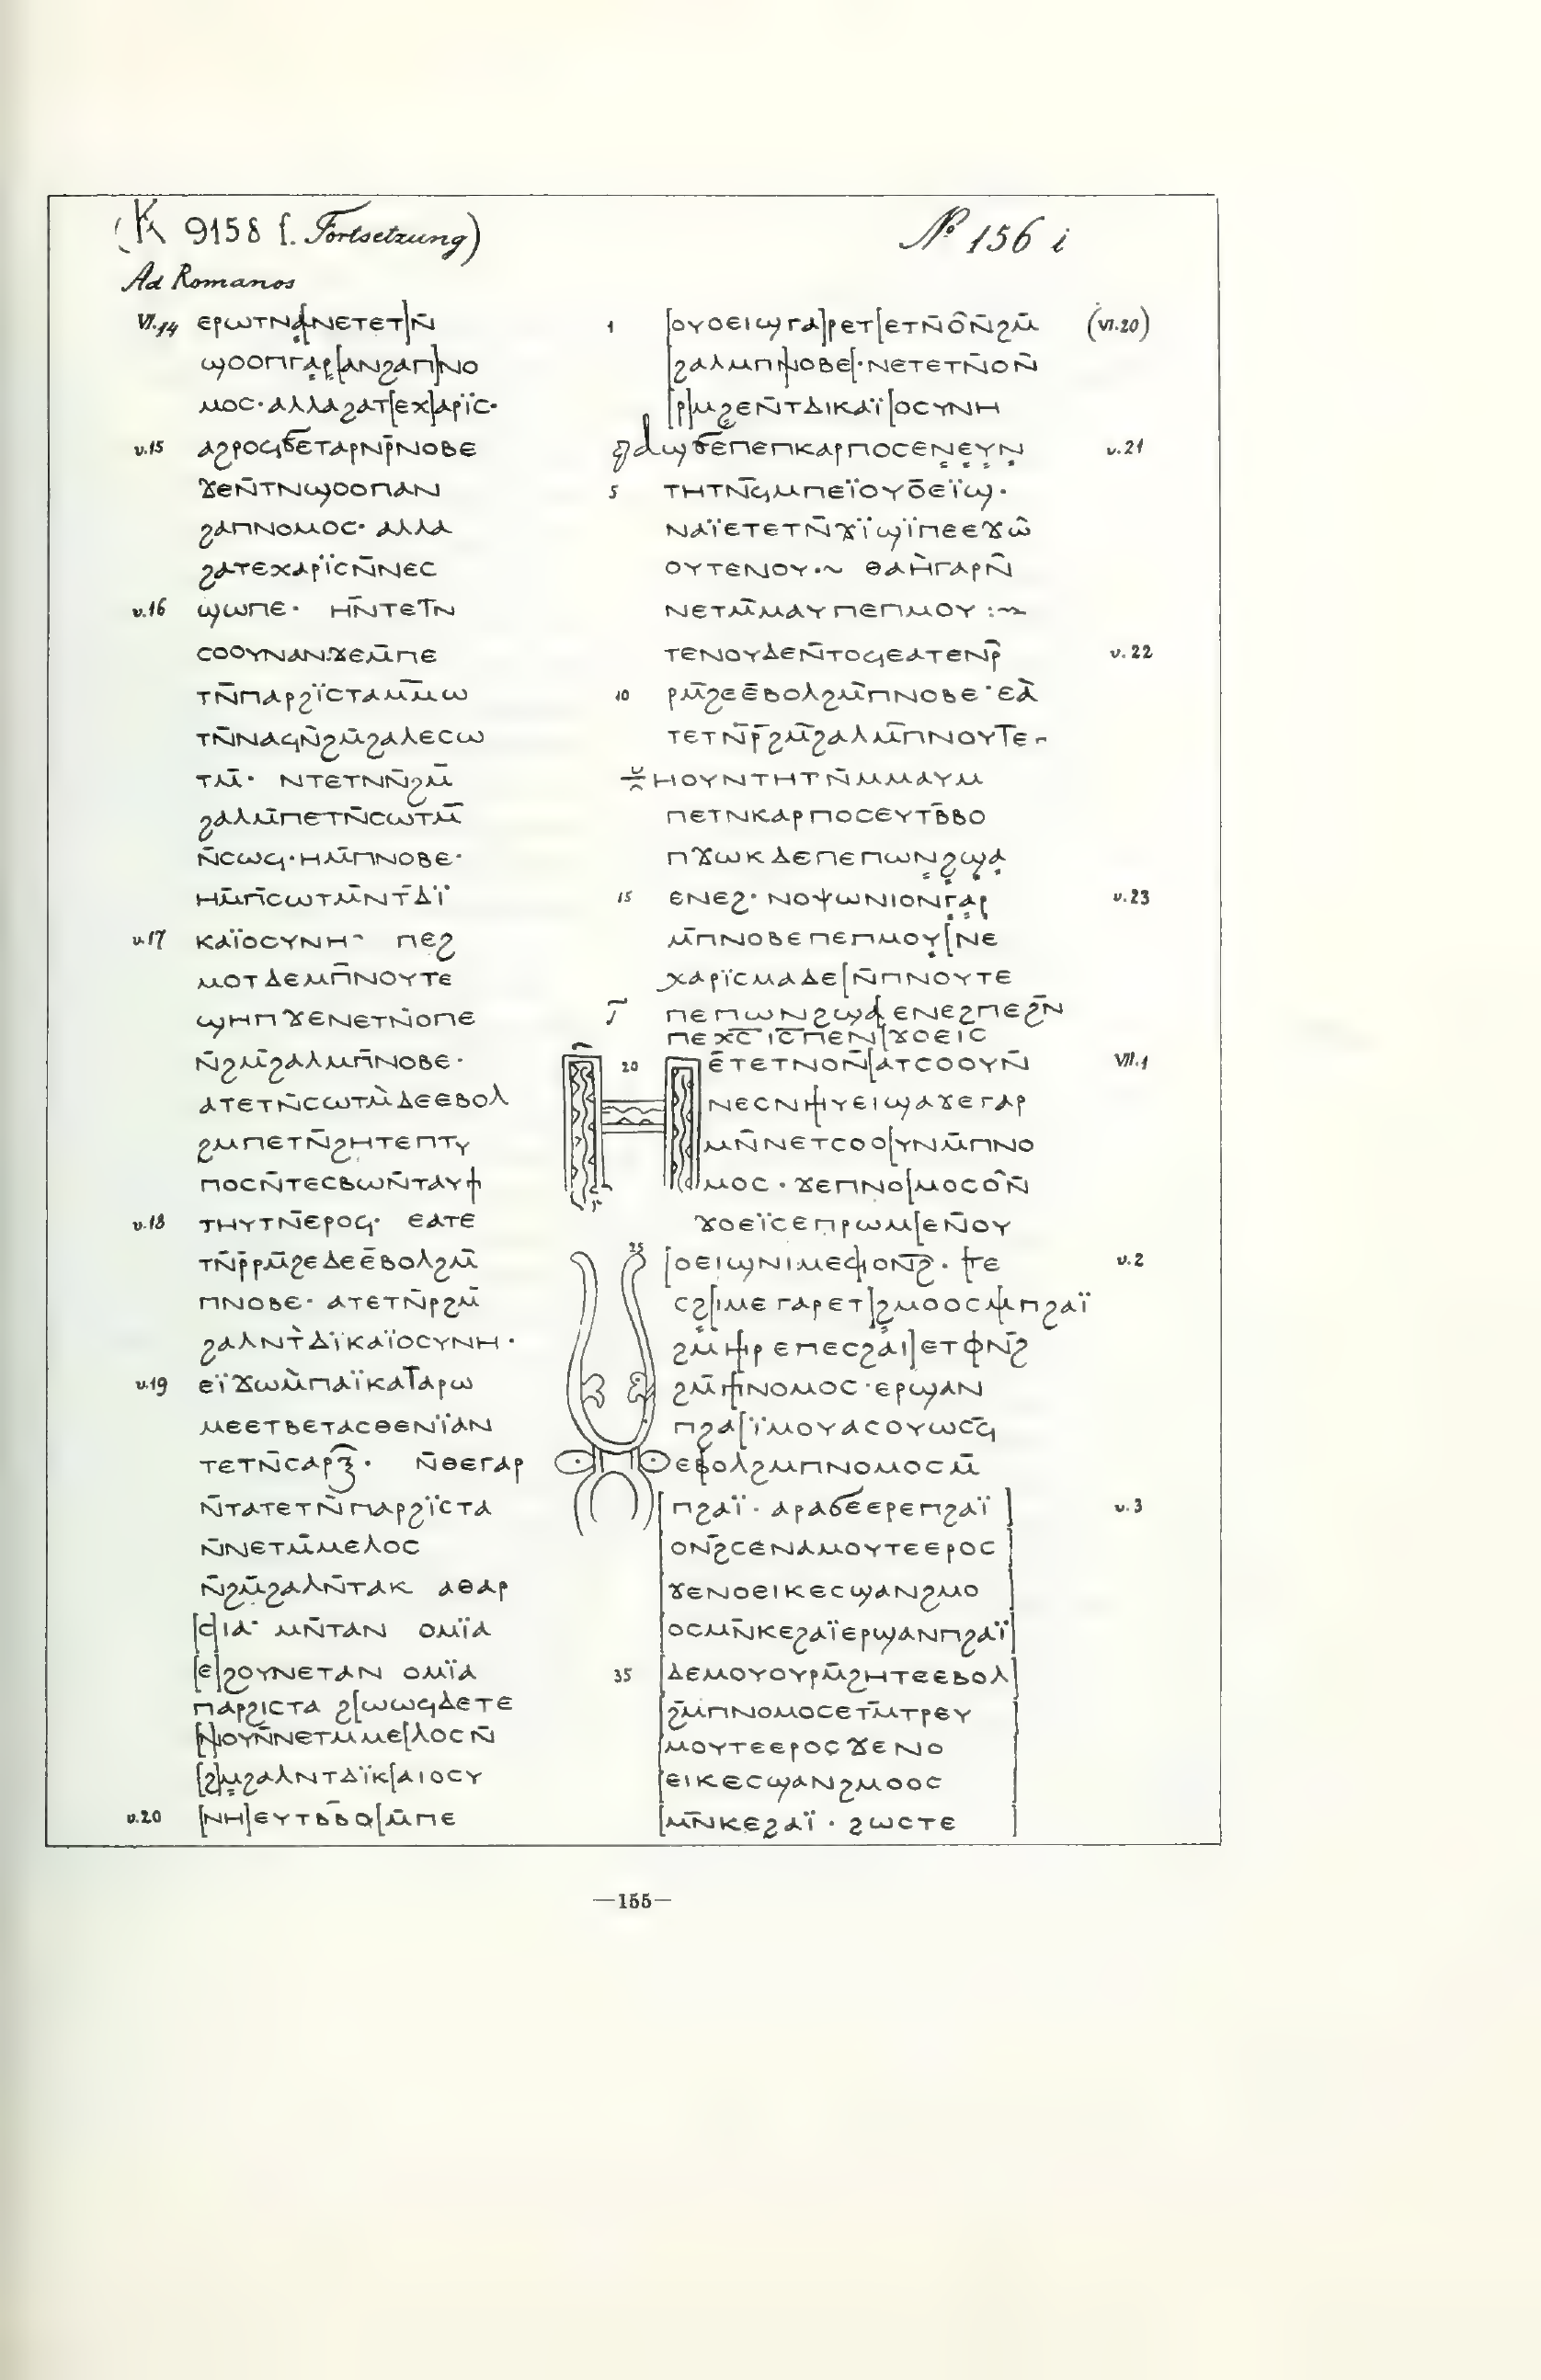 (K 9158 f. Fortsetzung)
№ 156 i
Ad Romanos
VI.14 ⲉⲣⲱⲧⲛ[ⲁ̣]ⲛⲉⲧⲉⲧ]ⲛ̄
ϣⲟⲟⲡⲅⲁ̣ⲣ̣[ⲁⲛϩⲁⲡ]ⲛⲟ
ⲙⲟⲥ· ⲁⲗⲗⲁϩⲁⲧ[ⲉⲭ]ⲁⲣⲓ̈ⲥ·
v.15 ⲁϩⲣⲟϥϭⲉⲧⲁⲣⲛⲣ̄ⲛⲟⲃⲉ
ϫⲉⲛ̄ⲧⲛϣⲟⲟⲡⲁⲛ
ϩⲁⲡⲛⲟⲙⲟⲥ· ⲁⲗⲗⲁ
ϩⲁⲧⲉⲭⲁⲣⲓ̈ⲥⲛ̄ⲛⲉⲥ
v.16 ϣⲱⲡⲉ· ⲏⲛ̄ⲧⲉⲧⲛ
ⲥⲟⲟⲩⲛⲁⲛ·ϫⲉⲙ̄ⲡⲉ
ⲧⲛ̄ⲡⲁⲣϩⲓ̈ⲥⲧⲁⲙ̄ⲙ̄ⲱ
ⲧⲛ̄ⲛⲁϥⲛ̀ϩⲙ̄ϩⲁⲗⲉⲥⲱ
ⲧⲙ̄· ⲛⲧⲉⲧⲛⲛ̄ϩⲙ̄
ϩⲁⲗⲙ̄ⲡⲉⲧⲛ̄ⲥⲱⲧⲙ̄
ⲛ̄ⲥⲱϥ·ⲏⲙ̄ⲡⲛⲟⲃⲉ·
ⲏⲙ̄ⲡⲥⲱⲧⲙ̄ⲛⲧ̄ⲇⲓ̈
v.17 ⲕⲁⲓ̈ⲟⲥⲩⲛⲏ· ⲡⲉϩ
ⲙⲟⲧⲇⲉⲙⲡ̄ⲛⲟⲩⲧⲉ
ϣⲏⲡϫⲉⲛⲉⲧⲛ̄ⲟⲡⲉ
ⲛ̄ϩⲙ̄ϩⲁⲗⲙⲡ̄ⲛⲟⲃⲉ·
ⲁⲧⲉⲧⲛ̄ⲥⲱⲧⲙ̀ⲇⲉⲉⲃⲟⲗ
ϩⲙⲡⲉⲧⲛ̄ϩⲏⲧⲉⲡⲧⲩ
ⲡⲟⲥⲛ̄ⲧⲉⲥⲃⲱⲛ̄ⲧⲁⲩϯ
v.18 ⲧⲏⲩⲧⲛ̄ⲉⲣⲟϥ· ⲉⲁⲧⲉ
ⲧⲛ̄ⲣ̄ⲣⲙ̄ϩⲉⲇⲉⲉ̄ⲃⲟⲗϩⲙ̄
ⲡⲛⲟⲃⲉ· ⲁⲧⲉⲧⲛ̄ⲣϩⲙ̄
ϩⲁⲗⲛⲧ̀ⲇⲓ̈ⲕⲁⲓ̈ⲟⲥⲩⲛⲏ·
v.19 ⲉⲓ̈ϫⲱⲙ̀ⲡⲁⲓ̈ⲕⲁⲧⲁⲣⲱ
ⲙⲉⲉⲧⲃⲉⲧⲁⲥⲑⲉⲛⲓ̈ⲁⲛ
ⲧⲉⲧⲛ̄ⲥⲁⲣⲝ̄· ⲛ̄ⲑⲉⲅⲁⲣ
ⲛ̄ⲧⲁⲧⲉⲧⲛ̄ⲡⲁⲣϩⲓ̈ⲥⲧⲁ
ⲛ̄ⲛⲉⲧⲙ̄ⲙⲉⲗⲟⲥ
ⲛ̄ϩⲙ̄ϩⲁⲗⲛ̄ⲧⲁⲕ ⲁⲑⲁⲣ
[ⲥ]ⲓⲁ· ⲙⲛ̄ⲧⲁⲛ ⲟⲙⲓ̈ⲁ
[ⲉ]ϩⲟⲩⲛⲉⲧⲁⲛ ⲟⲙⲓ̈ⲁ
ⲡⲁⲣϩⲓⲥⲧⲁ ϩ[ⲱⲱϥⲇⲉⲧⲉ
[ⲛ]ⲟⲩⲛ̄ⲛⲉⲧⲙⲙⲉ[ⲗⲟⲥⲛ̄
[ϩ]ⲙ̣ϩⲁⲗⲛⲧⲇⲓ̈ⲕ[ⲁⲓⲟⲥⲩ
v.20 [ⲛⲏ]ⲉⲩⲧⲃ̄ⲃⲟ[ⲙ̄ⲡⲉ
1 [ⲟⲩⲟⲉⲓϣⲅⲁ]ⲣⲉⲧ[ⲉⲧⲛ̄ⲟ̂ⲛ̄ϩⲙ̄ (VI.20)
[ϩⲁⲗⲙⲡ]ⲛⲟⲃⲉ[·ⲛⲉⲧⲉⲧⲛ̄ⲟⲛ̄
[ⲣ]ⲙϩ̣ⲉⲛ̄ⲧⲇⲓⲕⲁⲓ̈[ⲟⲥⲩⲛⲏ
ⲁϣϭⲉⲡⲉⲡⲕⲁⲣⲡⲟⲥⲉⲛ̣ⲉ̣ⲩ̣ⲛ̣ v.21
5 ⲧⲏⲧⲛ̄ϥⲙⲡⲉⲓ̈ⲟⲩⲟ̄ⲉⲓ̈ϣ·
ⲛⲁⲓ̈ⲉⲧⲉⲧⲛ̄ϫⲓ̈ϣⲓ̈ⲡⲉⲉϫⲱ̂
ⲟⲩⲧⲉⲛⲟⲩ·~ ⲑⲁⲏ̀ⲅⲁⲣⲛ̄
ⲛⲉⲧⲙ̄ⲙⲁⲩⲡⲉⲡⲙⲟⲩ :~
ⲧⲉⲛⲟⲩⲇⲉⲛ̄ⲧⲟϥⲉⲁⲧⲉⲛⲣ̄ v.22
10 ⲣⲙ̄ϩⲉⲉ̄ⲃⲟⲗϩⲙ̄ⲡⲛⲟⲃⲉ·ⲉⲁ̀
ⲧⲉⲧⲛ̄ⲣ̄ϩⲙ̄ϩⲁⲗⲙ̄ⲡⲛⲟⲩⲧⲉ-
ⲏⲟⲩⲛⲧⲏⲧⲛ̄ⲙⲙⲁⲩⲙ
ⲡⲉⲧⲛⲕⲁⲣⲡⲟⲥⲉⲩⲧⲃ̄ⲃⲟ
ⲡϫⲱⲕⲇⲉⲡⲉⲡⲱⲛ̣ϩ̣ϣ̣ⲁ̣
15 ⲉⲛⲉϩ· ⲛⲟⲯⲱⲛⲓⲟⲛⲅ̣ⲁ̣ⲣ v.23
ⲙ̄ⲡⲛⲟⲃⲉⲡⲉⲡⲙⲟⲩ̣[ⲛⲉ
ⲭⲁⲣⲓ̈ⲥⲙⲁⲇⲉ[ⲛ̄ⲡⲛⲟⲩⲧⲉ
ⲡⲉⲡⲱⲛϩϣⲁ[ⲉⲛⲉϩⲡⲉϩⲛ̄
ⲡⲉⲭ̄ⲥ̄ ⲓ̄ⲥ̄ⲡⲉⲛ[ϫⲟⲉⲓⲥ
20 ⲏ ⲉ̄ⲧⲉⲧⲛⲟⲛ̄[ⲁⲧⲥⲟⲟⲩⲛ̄ VII.1
ⲛⲉⲥⲛⲏⲩⲉⲓϣⲁϫⲉⲅⲁⲣ
ⲙⲛ̄ⲛⲉⲧⲥⲟⲟ[ⲩⲛⲙ̄ⲡⲛⲟ
ⲙⲟⲥ·ϫⲉⲡⲛⲟ[ⲙⲟⲥⲟ̂ⲛ̄
ϫⲟⲉⲓ̈ⲥⲉⲡⲣⲱⲙ[ⲉⲛ̄ⲟⲩ
25 [ⲟⲉⲓϣⲛⲓⲙⲉϥ]ⲟⲛϩ̄· [ⲧⲉ v.2
ⲥϩ̣[ⲓⲙⲉ ⲅⲁⲣⲉⲧ]ϩ̣ⲙⲟⲟⲥⲙ[ⲡϩⲁⲓ̈
ϩⲙ̄ⲡ]ⲧⲣ ⲉⲡⲉⲥϩⲁ̣ⲓ]ⲉⲧⲟⲛϩ̄
ϩⲙ̄ⲡ[ⲛⲟⲙⲟⲥ·ⲉⲣϣⲁⲛ
ⲡϩⲁ[ⲓ̈ⲙⲟⲩⲁⲥⲟⲩⲱⲥϥ̄
ⲉⲃⲟⲗϩⲙⲡⲛⲟⲙⲟⲥⲙ̄
[ⲡϩⲁⲓ̈· ⲁⲣⲁϭⲉⲉⲣⲉⲡϩⲁⲓ̈] v.3
ⲟⲛϩ̄ⲥⲉⲛⲁⲙⲟⲩⲧⲉⲉⲣⲟⲥ
ϫⲉⲛⲟⲉⲓⲕⲉⲥϣⲁⲛϩⲙⲟ
ⲟⲥⲙⲛ̄ⲕⲉϩⲁⲓ̈ⲉⲣϣⲁⲛⲡϩⲁⲓ̈
35 ⲇⲉⲙⲟⲩⲟⲩⲣⲙ̄ϩⲏⲧⲉⲉⲃⲟⲗ
ϩⲙ̄ⲡⲛⲟⲙⲟⲥⲉⲧⲙ̄ⲧⲣⲉⲩ
ⲙⲟⲩⲧⲉⲉⲣⲟⲥϫⲉⲛⲟ
ⲉⲓⲕⲉⲥϣⲁⲛϩⲙⲟⲟⲥ
[ⲙⲛ̄ⲕⲉϩⲁⲓ̈· ϩⲱⲥⲧⲉ]
—155—